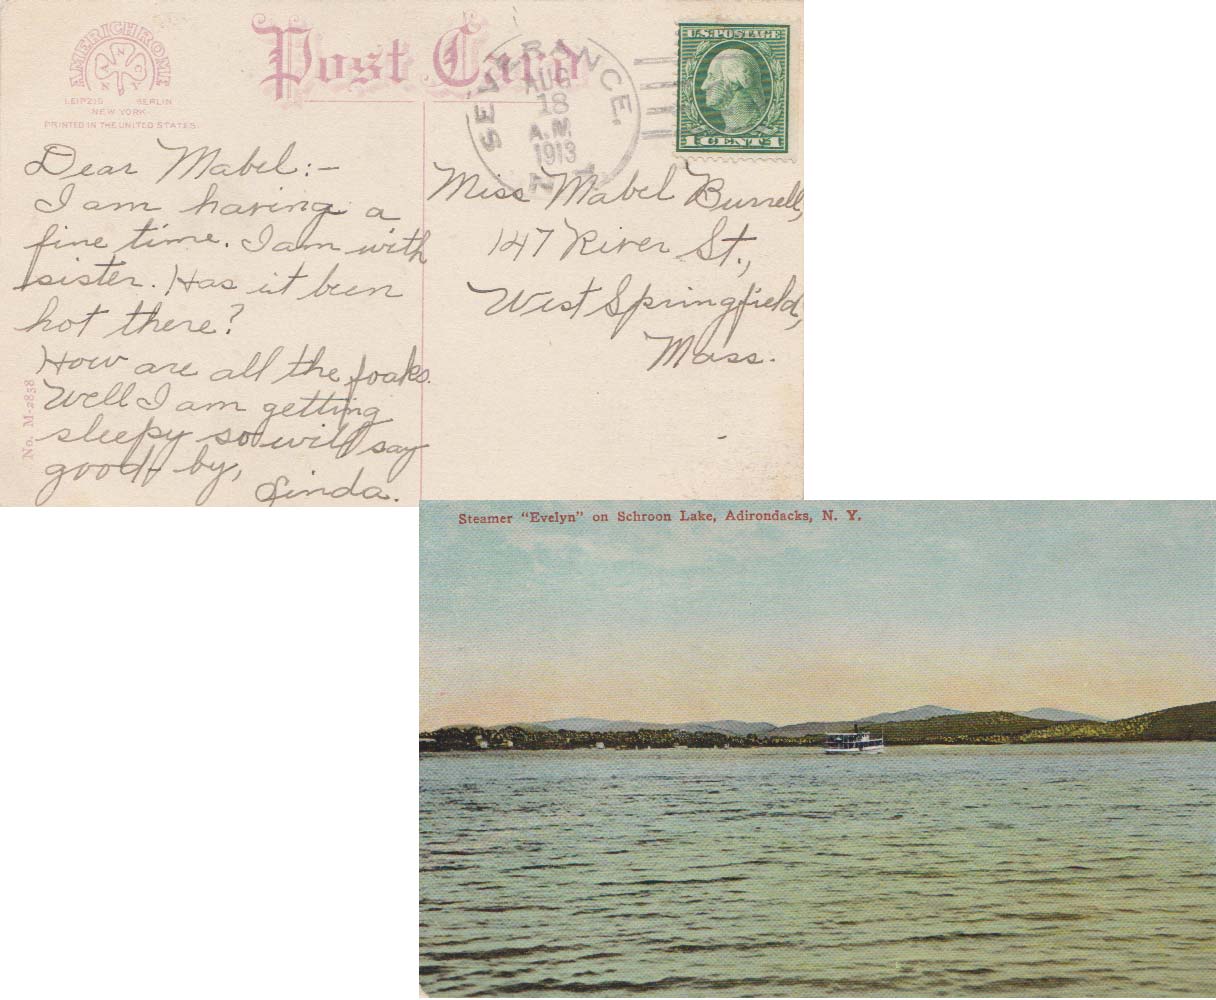 AMERICHROME
N
C
A
N Y
LEIPZIG BERLIN
NEW YORK
PRINTED IN THE UNITED STATES.
Post Card
SEVERANCE.
AUG
18
A.M.
1913
N.Y.
U.S. POSTAGE
1 CENT 1
Dear Mabel:-
I am having a
fine time. I am with
sister. Has it been
hot there?
How are all the foaks.
Well I am getting
sleepy so will say
good-by,
Linda.
Miss Mabel Burrell,
147 River St.,
West Springfield,
Mass.
No. M-2858
Steamer "Evelyn" on Schroon Lake, Adirondacks, N. Y.